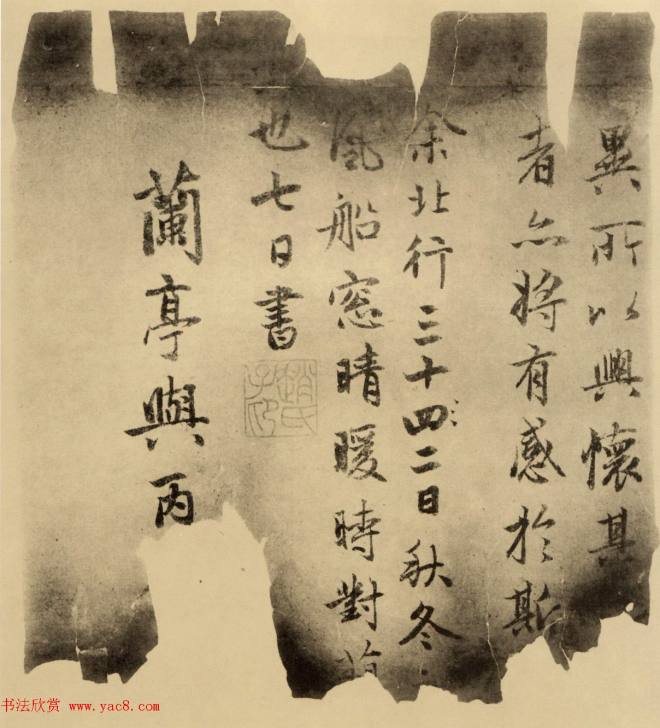 異所以興懷其
者亦将有感於斯
余北行三十四二日秋冬
風船窓晴暖時對
也七日書
趙氏子昂
蘭亭與丙
书法欣赏 www.yac8.com